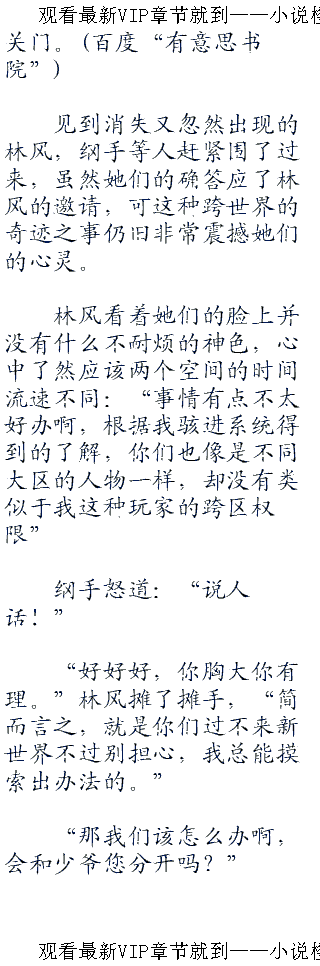 观看最新VIP章节就到——小说楼
关门。(百度“有意思书
院”)
见到消失又忽然出现的
林风，纲手等人赶紧围了过
来，虽然她们的确答应了林
风的邀请，可这种跨世界的
奇迹之事仍旧非常震撼她们
的心灵。
林风看着她们的脸上并
没有什么不耐烦的神色，心
中了然应该两个空间的时间
流速不同：“事情有点不太
好办啊，根据我骇进系统得
到的了解，你们也像是不同
大区的人物一样，却没有类
似于我这种玩家的跨区权
限”
纲手怒道：“说人
话！”
“好好好，你胸大你有
理。”林风摊了摊手，“简
而言之，就是你们过不来新
世界不过别担心，我总能摸
索出办法的。”
“那我们该怎么办啊，
会和少爷您分开吗？”
观看最新VIP章节就到——小说